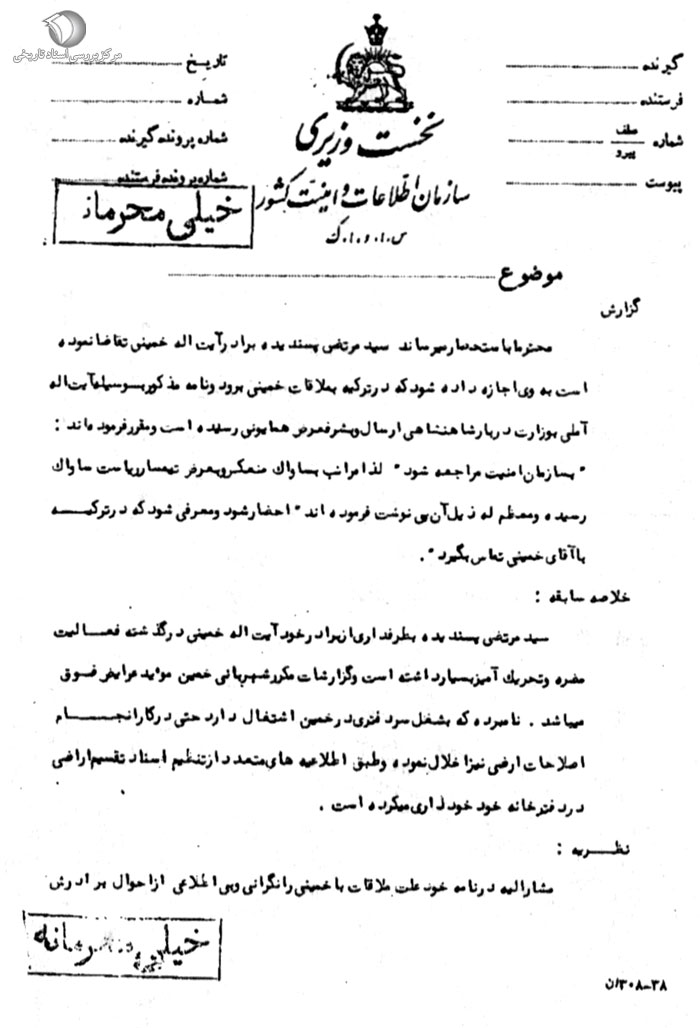 مرکز بررسی اسناد تاریخی
گیرنده
فرستنده
شماره عطف
پیرو
پیوست
نخست وزیری
سازمان اطلاعات و امنیت کشور
س.ا.و.ا.ک
تاریخ
شماره
شماره پرونده گیرنده
شماره پرونده فرستنده
خیلی محرمانه
موضوع
گزارش
محترما باستحضار میرساند سید مرتضی پسندیده برادر آیت اله خمینی تقاضا نموده
است به وی اجازه داده شود که در ترکیه بملاقات خمینی برود ونامه مذکور بوسیله آیت اله
آملی بوزارت دربار شاهنشاهی ارسال وبشرفعرض همایونی رسیده است ومقرر فرموده اند :
" بسازمان امنیت مراجعه شود " لذا مراتب بساواک منعکس وبعرض تیمسار ریاست ساواک
رسیده ومعظم له ذیل آن پی نوشت فرموده اند " احضار شود ومعرفی شود که در ترکیه
با آقای خمینی تماس بگیرد " .
خلاصه سابقه :
سید مرتضی پسندیده بطرفداری از برادر خود آیت اله خمینی در گذشته فعالیت
مضره وتحریک آمیز بسیار داشته است وگزارشات مکرر شهربانی خمین موید عرایض فوق
میباشد . نامبرده که بشغل سردفتری در خمین اشتغال دارد حتی در کار انجام
اصلاحات ارضی نیز اخلال نموده وطبق اطلاعیه های متعدد از تنظیم اسناد تقسیم اراضی
در دفترخانه خود خودداری میکرده است .
نظریه :
مشارالیه در نامه خود علت ملاقات با خمینی را نگرانی وبی اطلاعی از احوال برادرش
خیلی محرمانه
۳۸-۳۰۸/ن